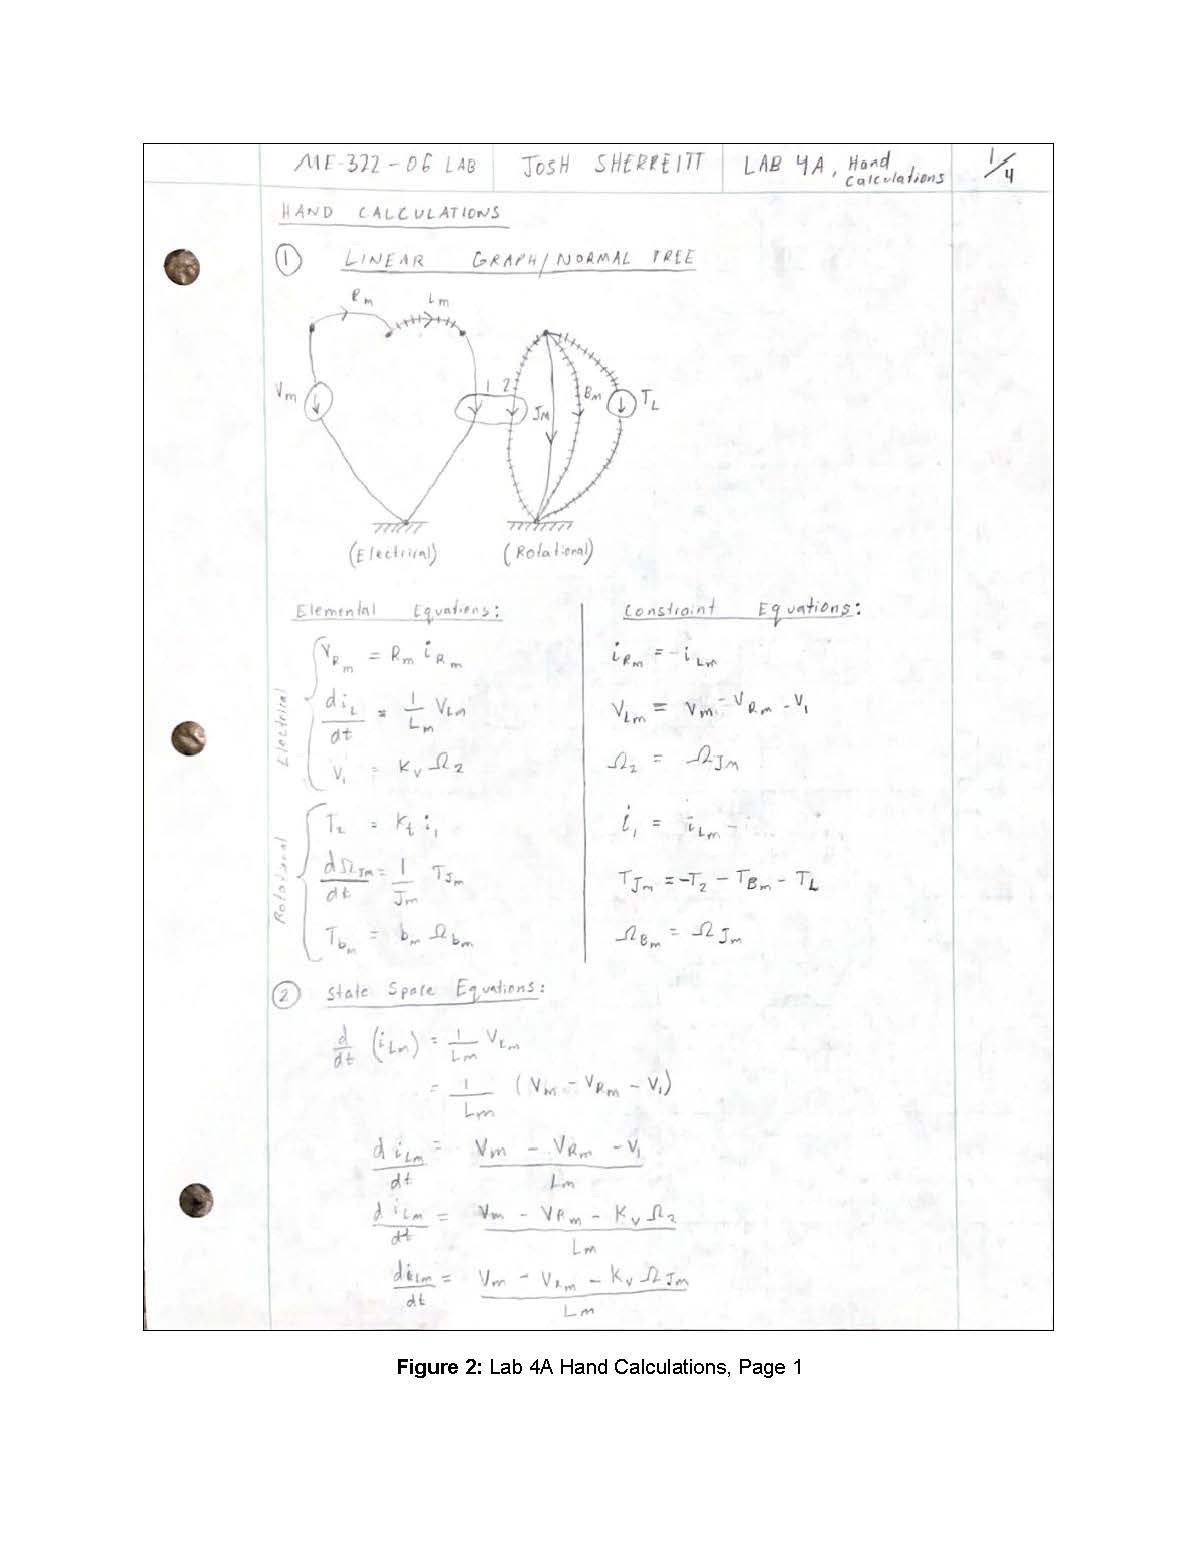 ME-322-06 LAB JOSH SHERREITT LAB 4A, Hand Calculations 1/4
HAND CALCULATIONS
① LINEAR GRAPH/NORMAL TREE
Rm Lm
Vm 1 2 JM Bm TL
(Electrical) (Rotational)
Elemental Equations: Constraint Equations:
Electrical
V_Rm = Rm i_Rm
di_L/dt = 1/Lm V_Lm
V_1 = K_v Ω_2
Rotational
T_2 = K_t i_1
dΩ_Jm/dt = 1/Jm T_Jm
T_bm = b_m Ω_bm
i_Rm = -i_Lm
V_Lm = V_m - V_Rm - V_1
Ω_2 = Ω_JM
i_1 = i_Lm -
T_Jm = -T_2 - T_Bm - T_L
Ω_Bm = Ω_Jm
② State Space Equations:
d/dt (i_Lm) = 1/Lm V_Lm
= 1/Lm (V_m - V_Rm - V_1)
d i_Lm/dt = (V_m - V_Rm - V_1)/Lm
d i_Lm/dt = (V_m - V_Rm - K_v Ω_2)/Lm
d i_Lm/dt = (V_m - V_Rm - K_v Ω_Jm)/Lm
Figure 2: Lab 4A Hand Calculations, Page 1